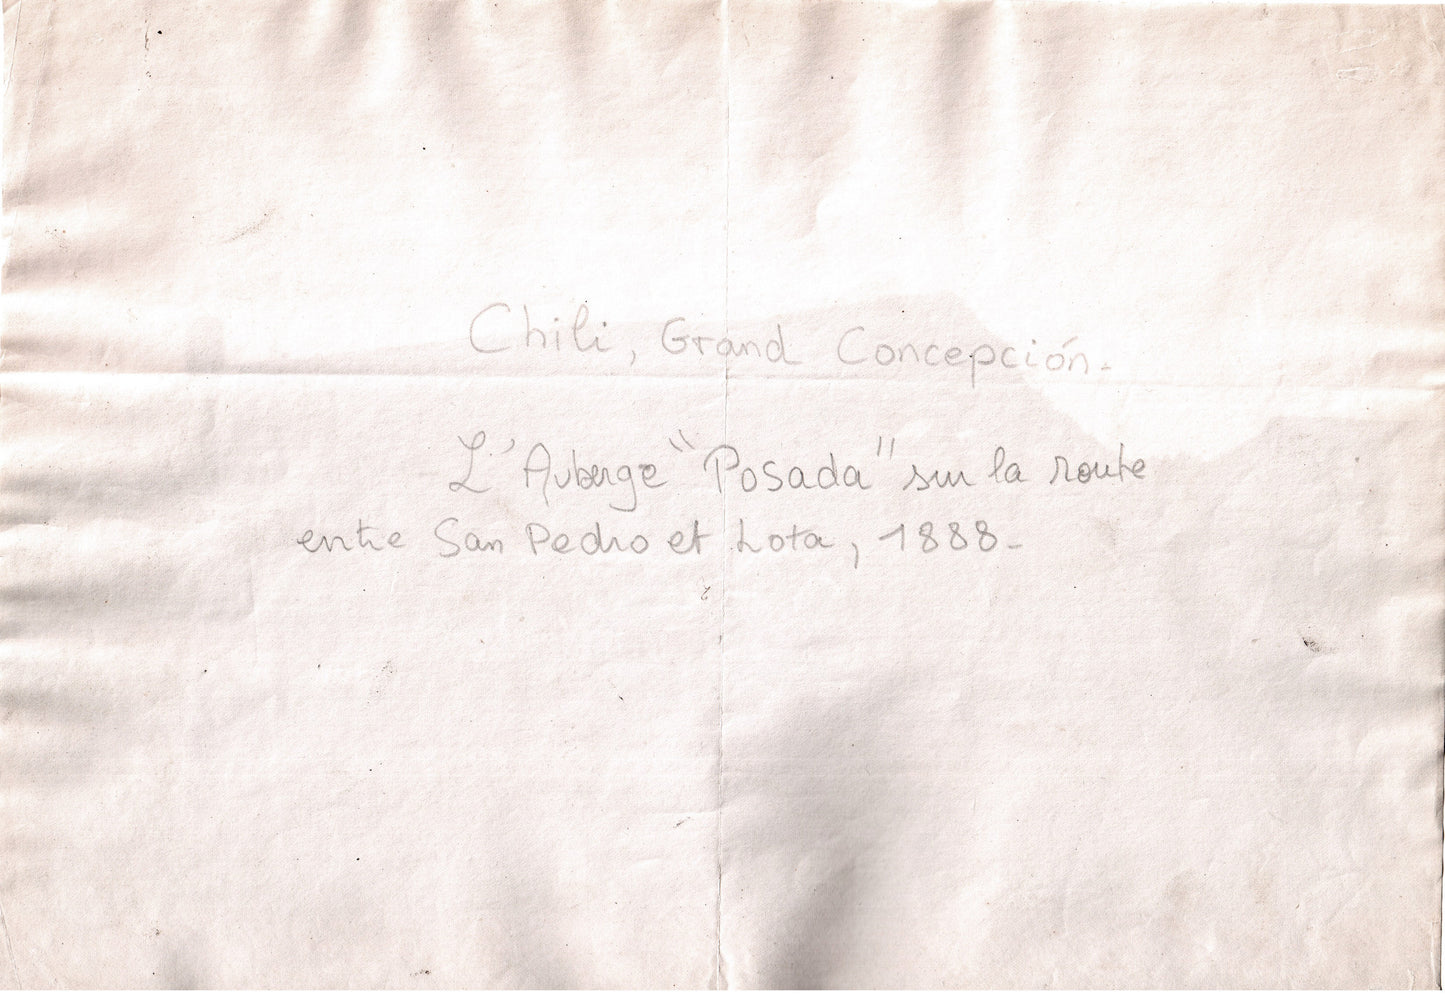 Chili, Grand Concepción.
L'Auberge "Posada" sur la route
entre San Pedro et Lota, 1888.